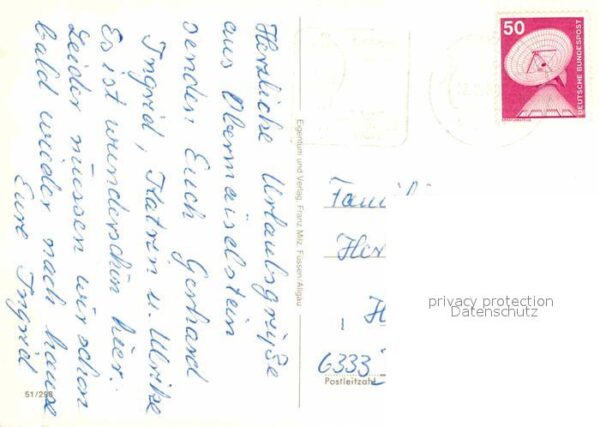 Herzliche Urlaubsgrüße
aus Obermaiselstein
senden Euch Gerhard
Ingrid, Katrin u. Ulrike
Es ist wunderschön hier.
Leider müssen wir schon
bald wieder nach hause
Eure Ingrid
51/298
Eigentum und Verlag, Franz Milz, Füssen-Allgäu
50
DEUTSCHE BUNDESPOST
Fami
Her
H
6333
Postleitzahl
privacy protection
Datenschutz